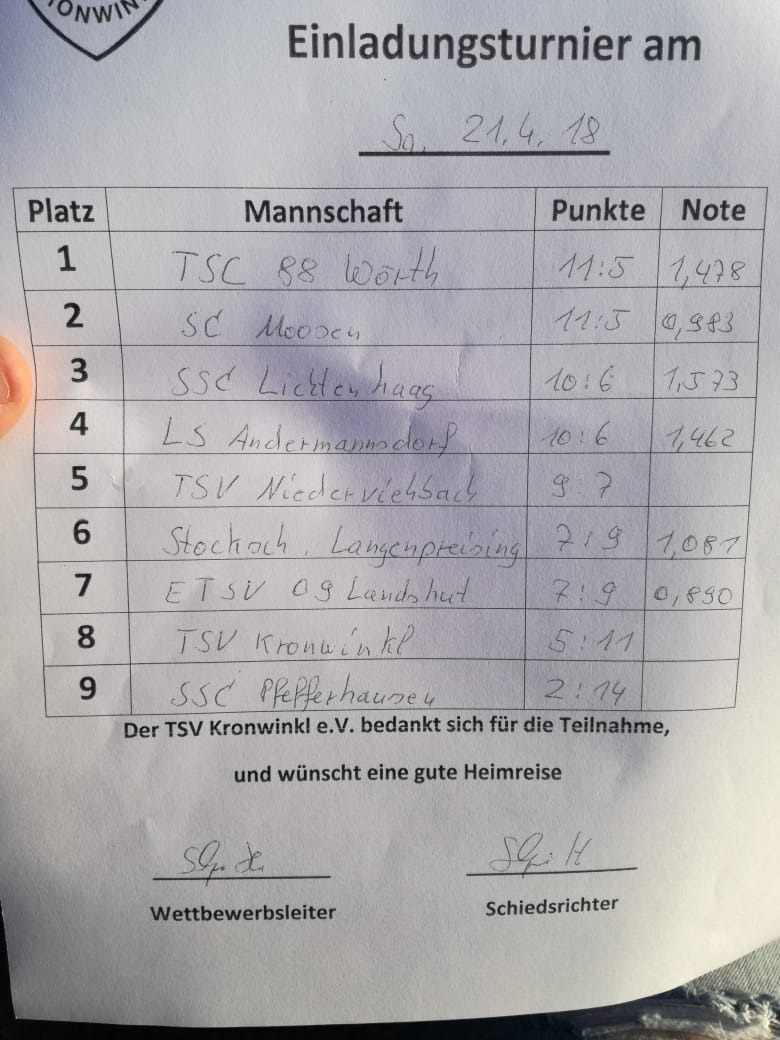 ONWIN
Einladungsturnier am
Sa. 21.4.18
Platz Mannschaft Punkte Note
1 TSC 88 Wörth 11:5 1,478
2 SC Moosen 11:5 0,983
3 SSC Lichtenhaag 10:6 1,573
4 LS Andermannsdorf 10:6 1,462
5 TSV Niederviehbach 9:7
6 Stocksch. Langenpreising 7:9 1,081
7 ETSV 09 Landshut 7:9 0,890
8 TSV Kronwinkl 5:11
9 SSC Pfeffenhausen 2:14
Der TSV Kronwinkl e.V. bedankt sich für die Teilnahme,
und wünscht eine gute Heimreise
Wettbewerbsleiter Schiedsrichter